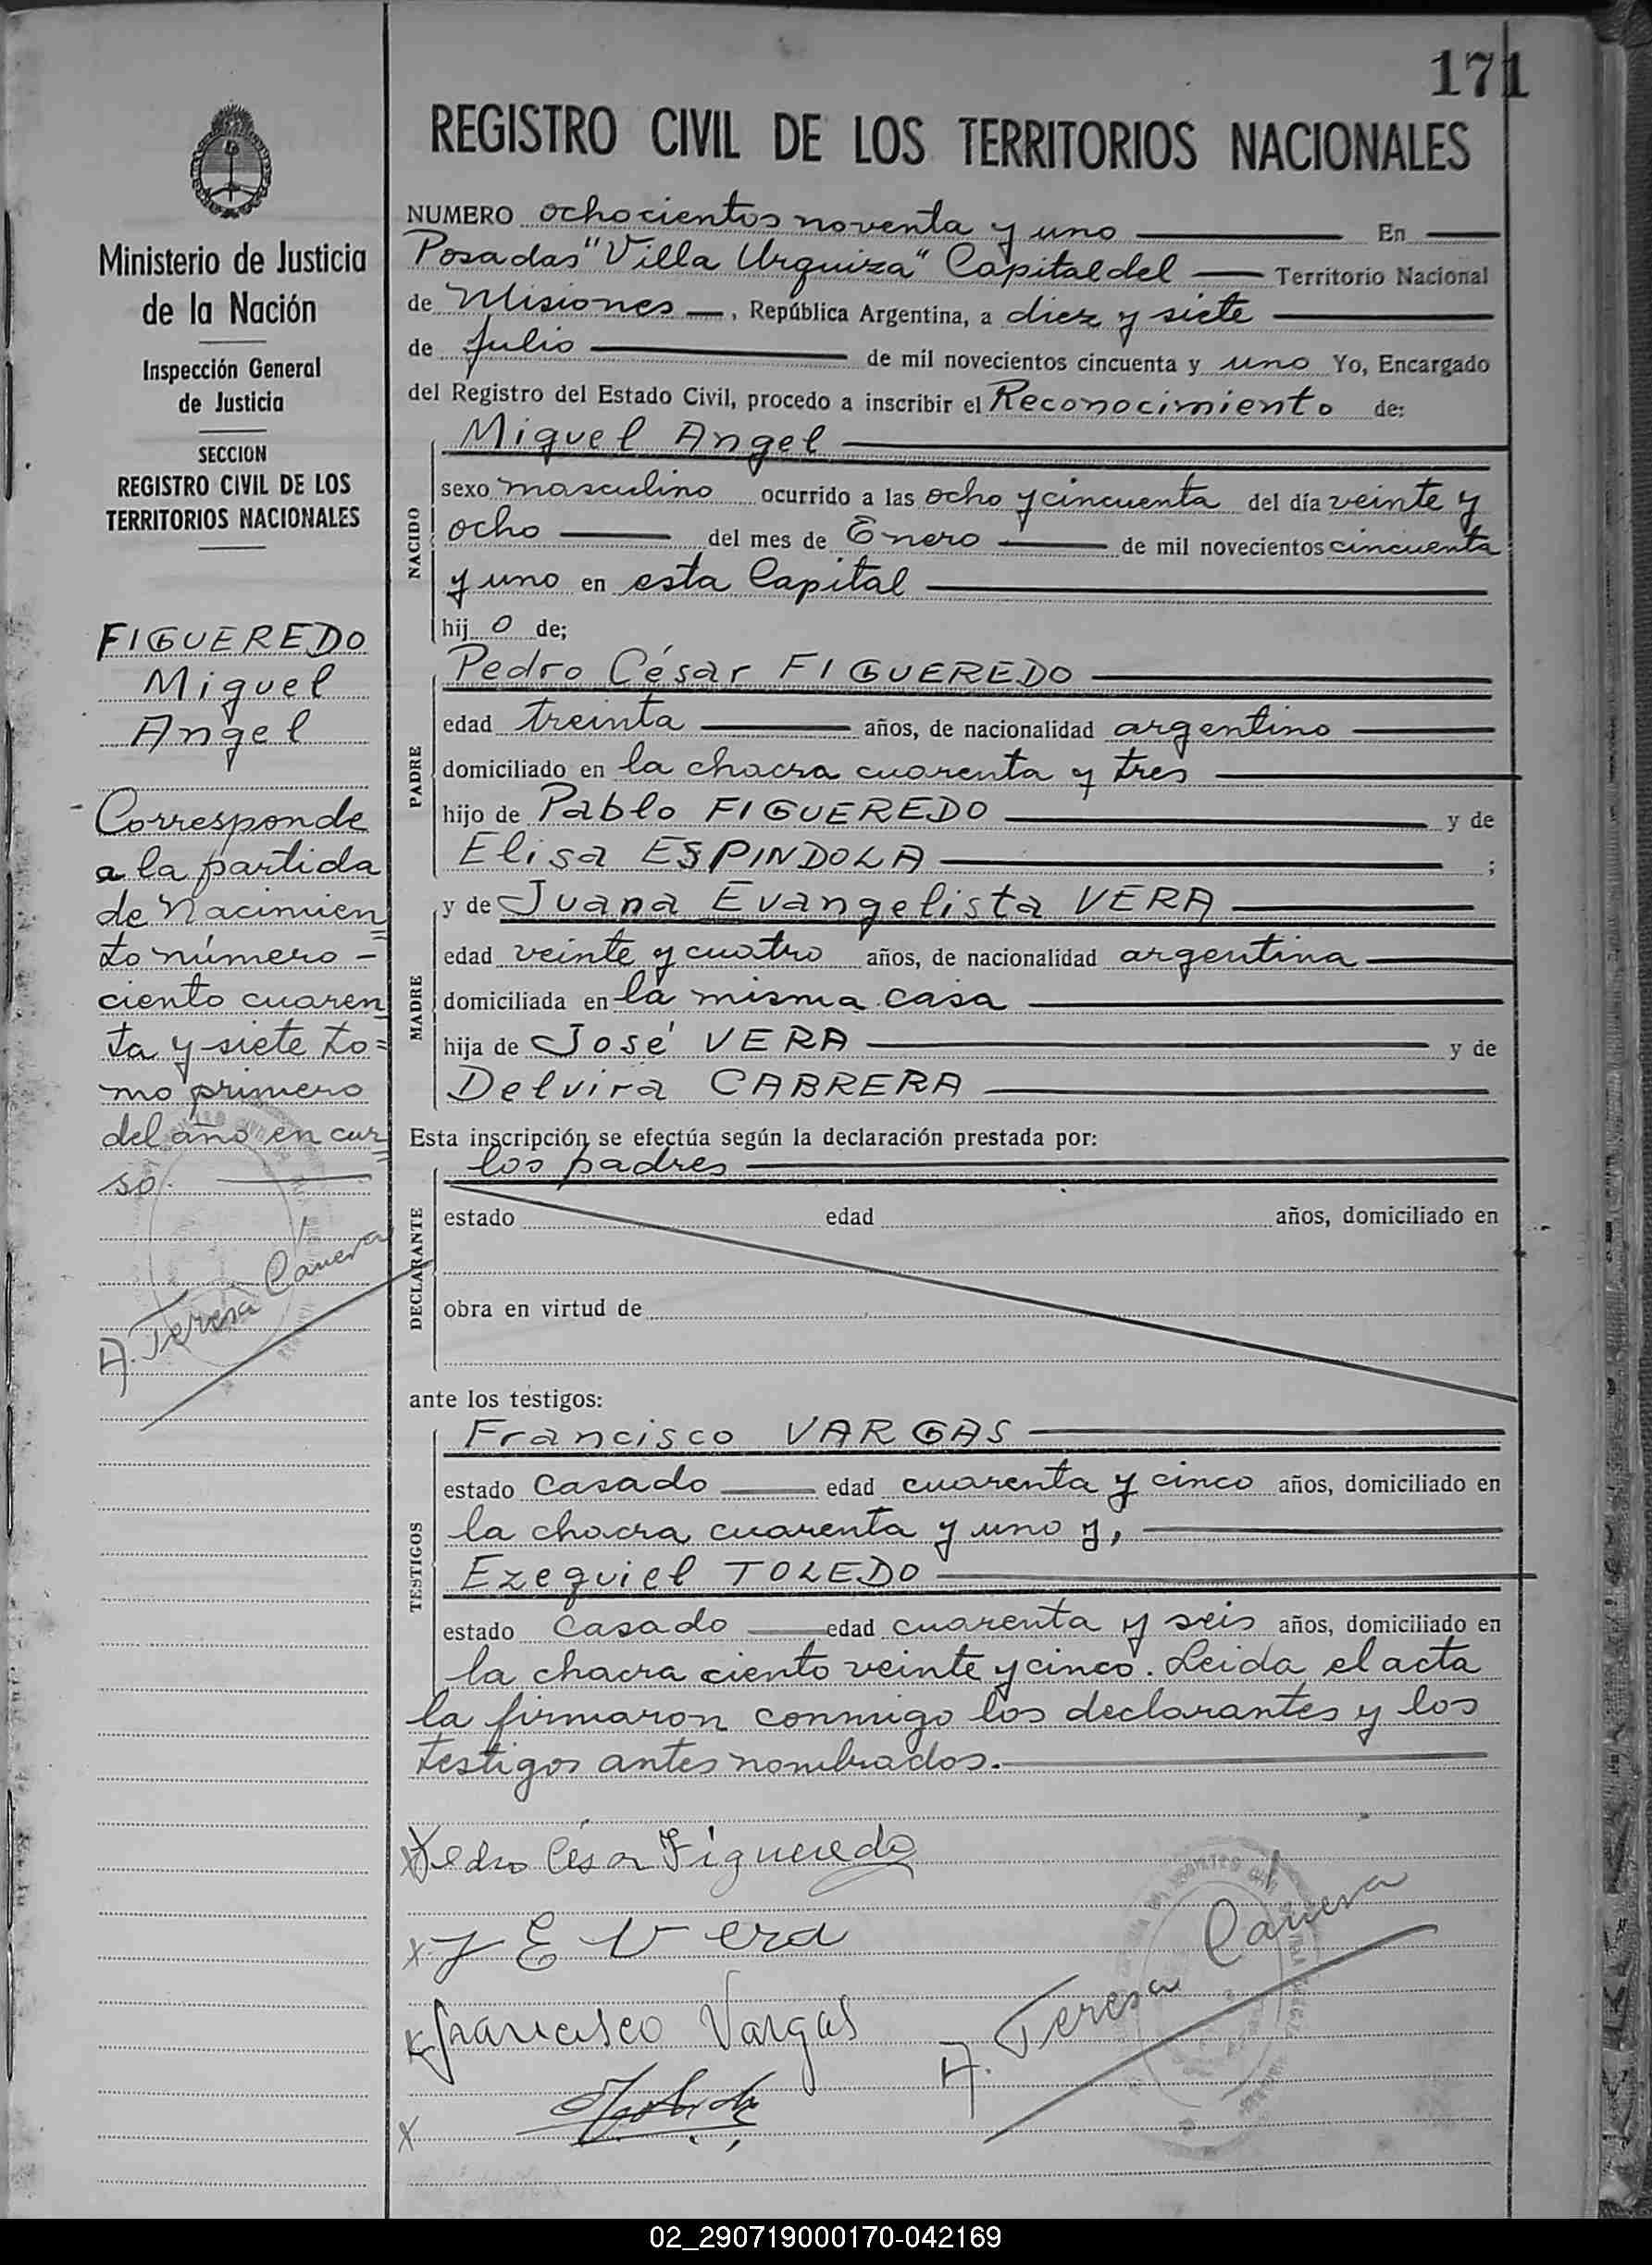 171
REGISTRO CIVIL DE LOS TERRITORIOS NACIONALES
Ministerio de Justicia
de la Nación
Inspección General
de Justicia
SECCION
REGISTRO CIVIL DE LOS
TERRITORIOS NACIONALES
FIGUEREDO
Miguel
Angel
Corresponde
a la partida
de Nacimien
to número -
ciento cuaren
ta y siete to=
mo primero
del año en cur
so.
A. Teresa
NUMERO ochocientos noventa y uno En
Posadas "Villa Urquiza" Capital del Territorio Nacional
de Misiones, República Argentina, a diez y siete
de Julio de mil novecientos cincuenta y uno Yo, Encargado
del Registro del Estado Civil, procedo a inscribir el Reconocimiento de:
Miguel Angel
NACIDO
sexo masculino ocurrido a las ocho y cincuenta del día veinte y
ocho del mes de Enero de mil novecientos cincuenta
y uno en esta Capital
hij o de;
Pedro César FIGUEREDO
PADRE
edad treinta años, de nacionalidad argentino
domiciliado en la chacra cuarenta y tres
hijo de Pablo FIGUEREDO y de
Elisa ESPINDOLA ;
y de Juana Evangelista VERA
MADRE
edad veinte y cuatro años, de nacionalidad argentina
domiciliada en la misma casa
hija de José VERA y de
Delvira CABRERA
Esta inscripción se efectúa según la declaración prestada por:
los padres
DECLARANTE
estado edad años, domiciliado en
obra en virtud de
ante los testigos:
Francisco VARGAS
TESTIGOS
estado Casado edad cuarenta y cinco años, domiciliado en
la chacra cuarenta y uno y,
Ezequiel TOLEDO
estado Casado edad cuarenta y seis años, domiciliado en
la chacra ciento veinte y cinco. Leida el acta
la firmaron conmigo los declarantes y los
testigos antes nombrados.
Pedro César Figueredo
J E Vera
Francisco Vargas
A. Teresa
02_290719000170-042169